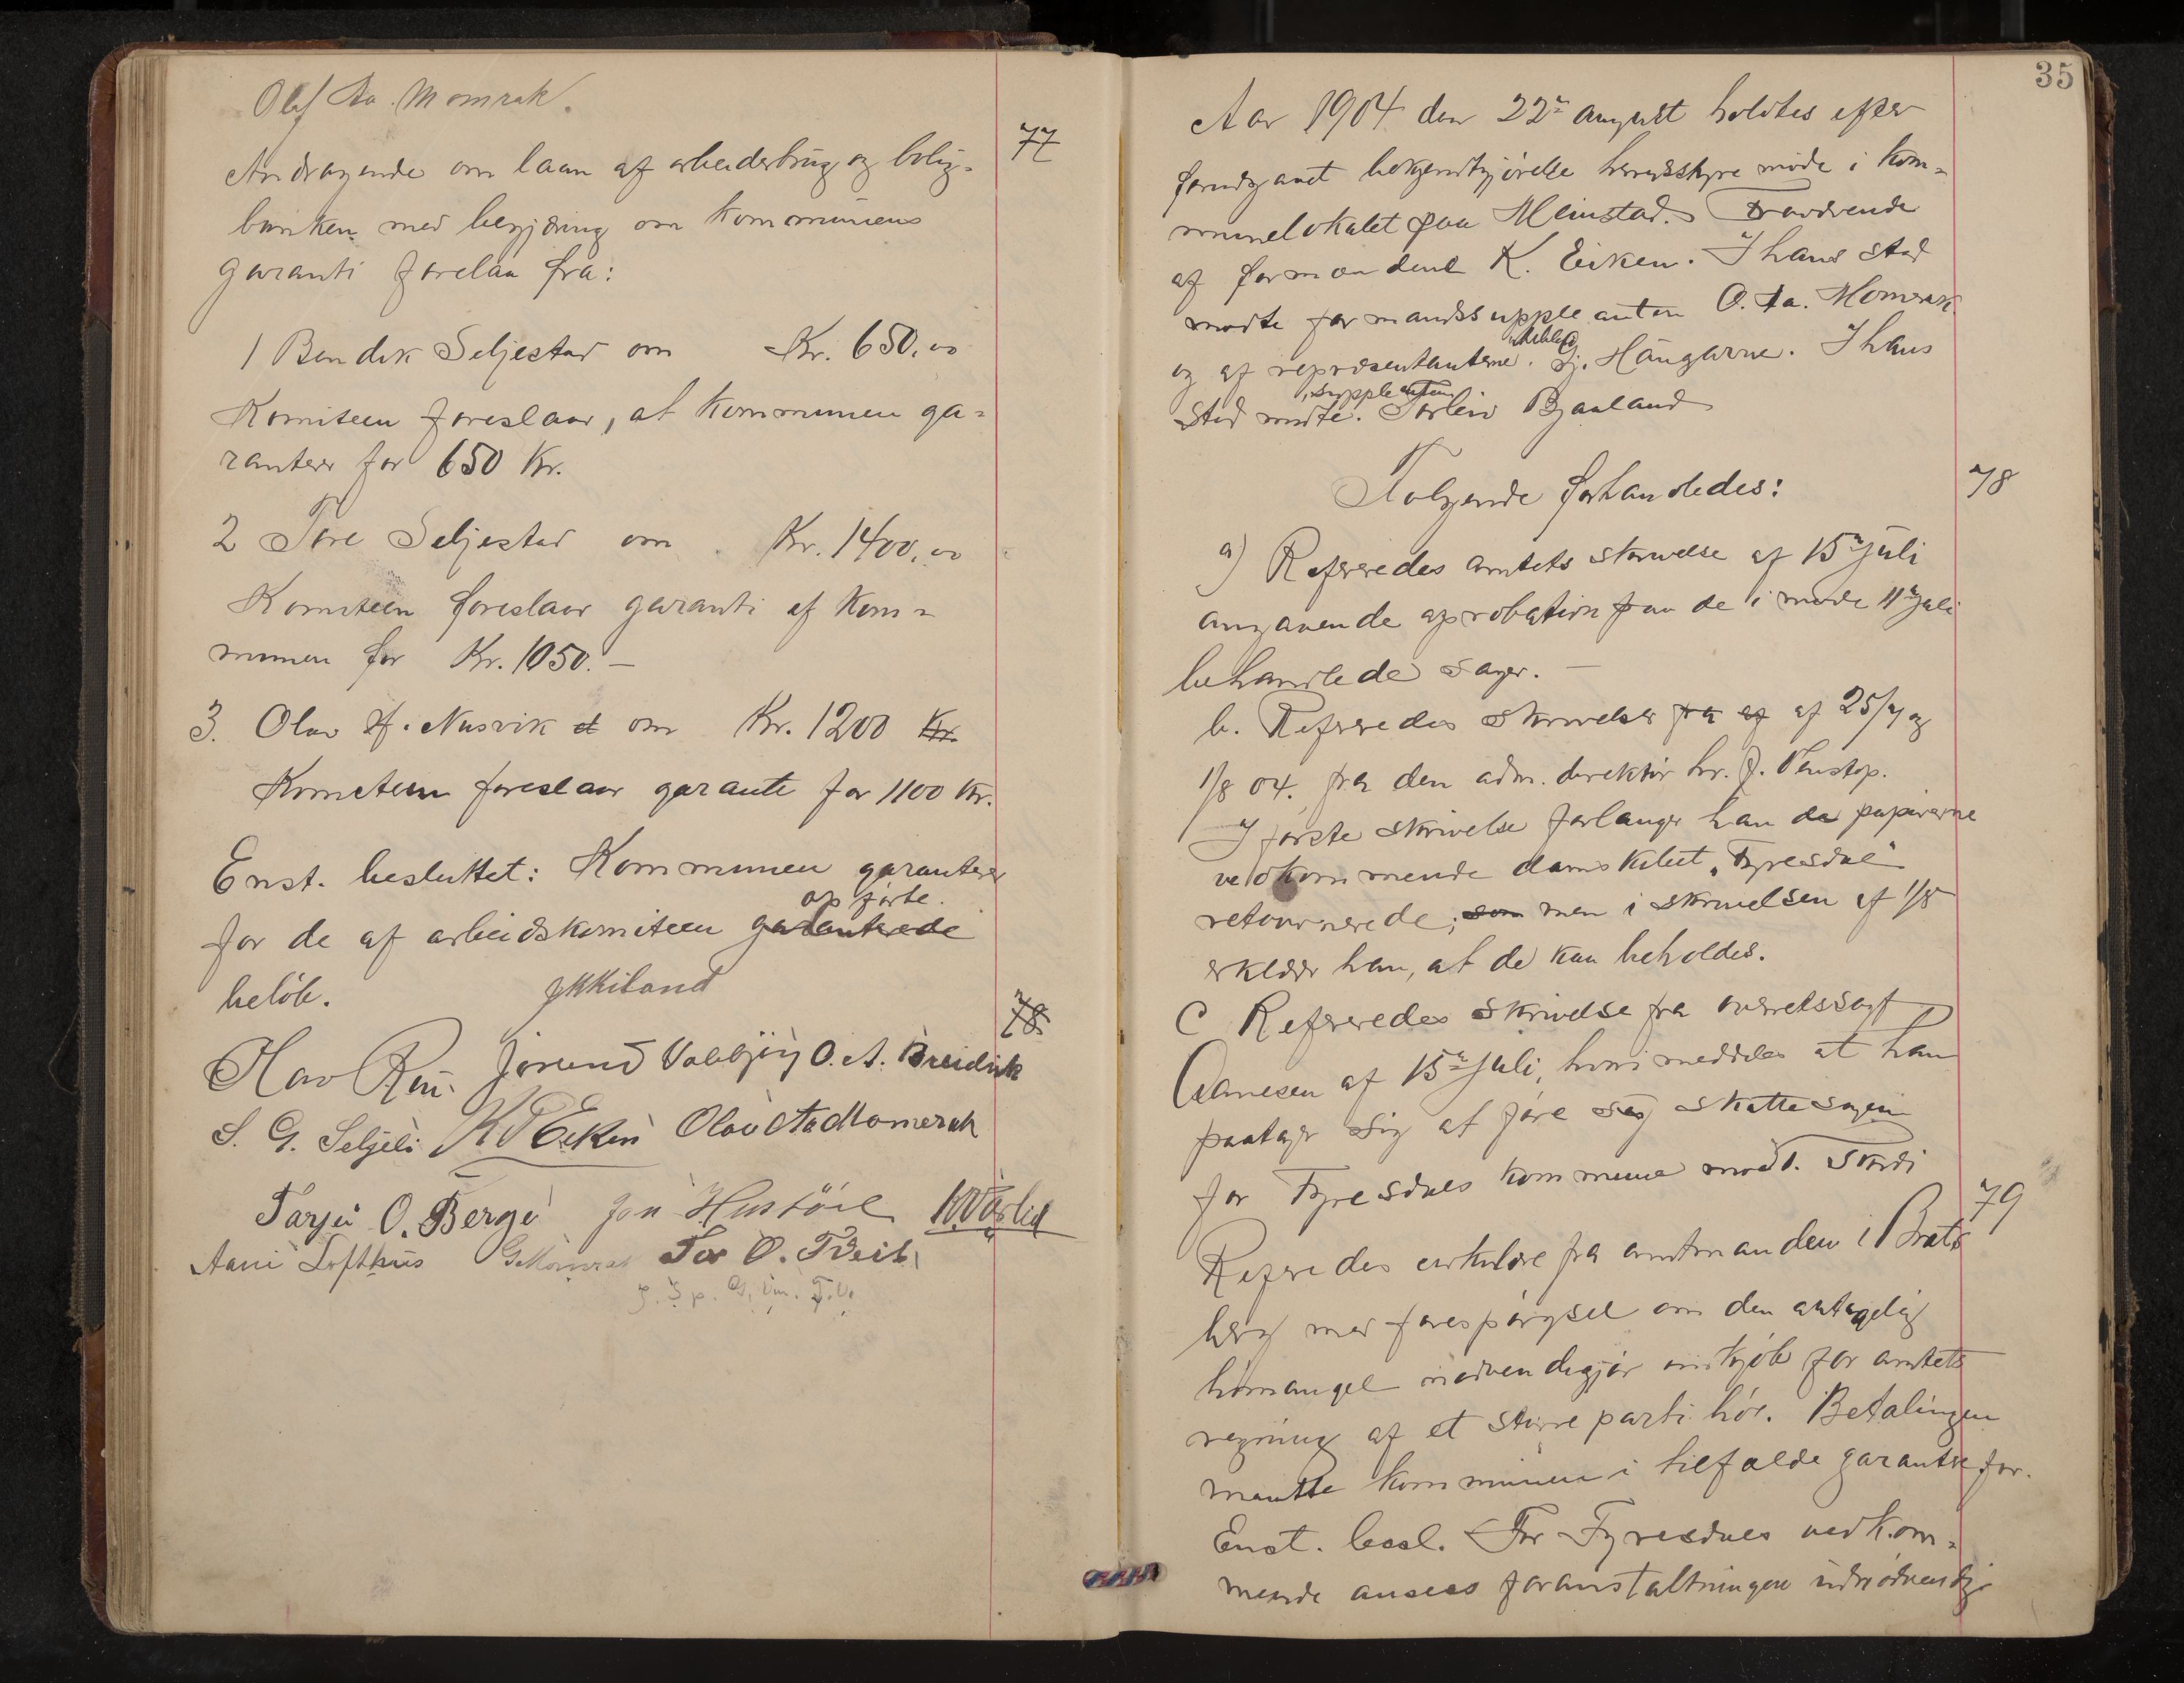 Olaf Aa. Momrak.
77
Andragende om laan af arbeiderbrug og bolig-
banken med begjæring om kommunens
garanti forelaa fra:
1 Bendik Seljestad om Kr. 650.00
Komiteen foreslaar, at kommunen ga-
ranterer for 650 Kr.
2 Tore Seljestad om Kr. 1400.00
Komiteen foreslaar garanti af kom-
munen for Kr. 1050.–
3. Olav H. Nusvik et om Kr. 1200 Kr.
Komiteen foreslaar garanti for 1100 Kr.
Enst. besluttet: Kommunen garanterer
opførte.
for de af arbeidskomiteen garanterede
beløb.
78
Olav Rui. Jørund O. A. Breidvik
S. G. Seljeli K T Eiken Olav Aa Momrak
Tarjei O. Berge Jon K. Vorlid
Aani Lofthus G Momrak Tor O. Tveit
35
Aar 1904 den 22de august holdtes efter
forudgaaet bekjendtgjørelse herredsstyremøde i kom-
munelokalet paa Meinstad. Fraværende
af formændene K. Eiken. I hans sted
mødte formandssuppleanten O. Aa. Momrak
og af repræsentanterne G. Haugarne. I hans
suppleanten
sted mødte. Torleiv Bjaaland
78
Følgende forhandledes:
a) Refereredes amtets skrivelse af 15de juli
angaaende aprobation paa de i møde 11te juli
behandlede sager. –
b. Refereredes skrivelser fra af af 25/7 og
1/8 04. fra den adm. direktør hr. J. Venstøp.
I første skrivelse forlanger han da papirerne
vedkommende damskibet "Fyresdøl"
retournerede; som men i skrivelsen af 1/8
erklærer han, at de kan beholdes.
C Refereredes skrivelse fra overretssagf
Aanesen af 15de juli, hvori meddeles at han
paatager sig at føre sag skattesagen
for Fyresdals kommune mod O. Skrdi
79
Refereredes cirkulære fra amtmanden i Brats
berg med forespørgsel om den antagelig
høimangel nødvendiggjør indkjøb for amtets
regning af et større parti hø. Betalingen
maatte kommunen i tilfælde garantere for.
Enst. besl. For Fyresdals vedkom-
mende ansees foranstaltningen unødvendig